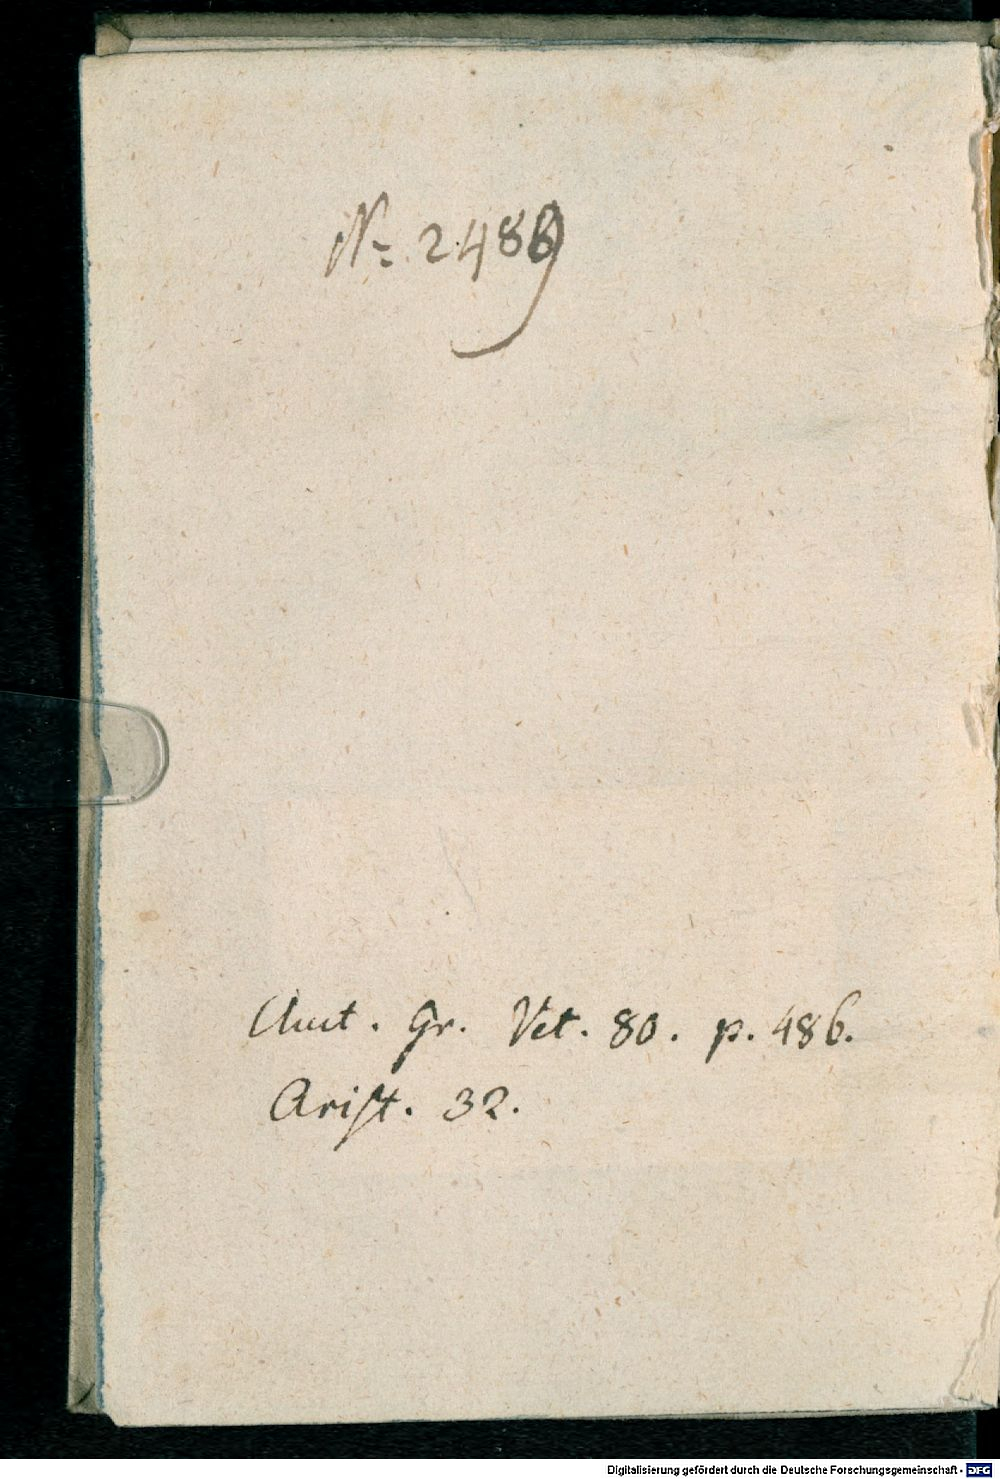 N. 2489
Auct. Gr. Vet. 80. p. 486.
Arist. 32.
Digitalisierung gefördert durch die Deutsche Forschungsgemeinschaft - DFG